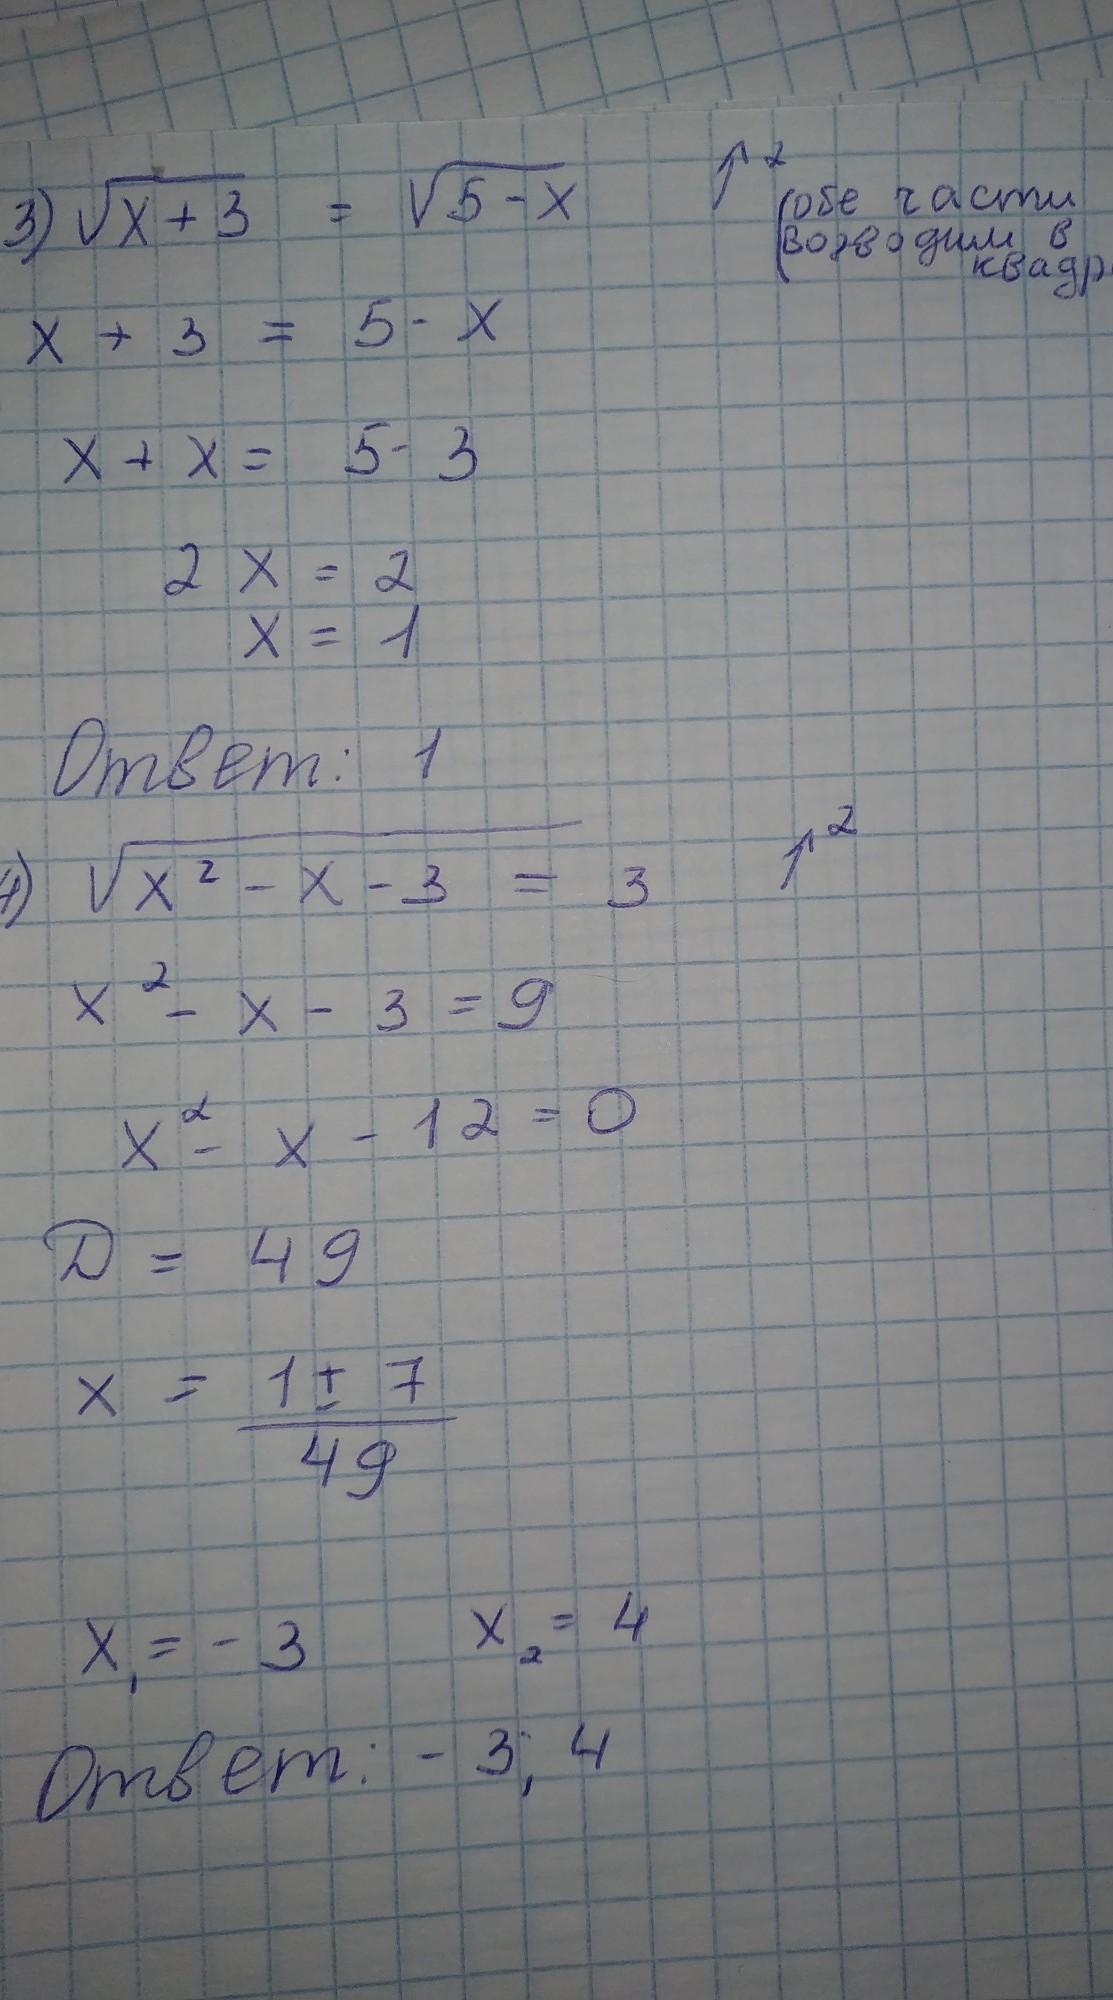 3) √x+3 = √5-x ↑²
(обе части
возводим в
квадр
x + 3 = 5 - x
x + x = 5 - 3
2x = 2
x = 1
Ответ: 1
4) √x² - x - 3 = 3 ↑²
x² - x - 3 = 9
x² - x - 12 = 0
D = 49
x = 1 ± 7
49
x₁ = -3 x₂ = 4
Ответ: -3; 4